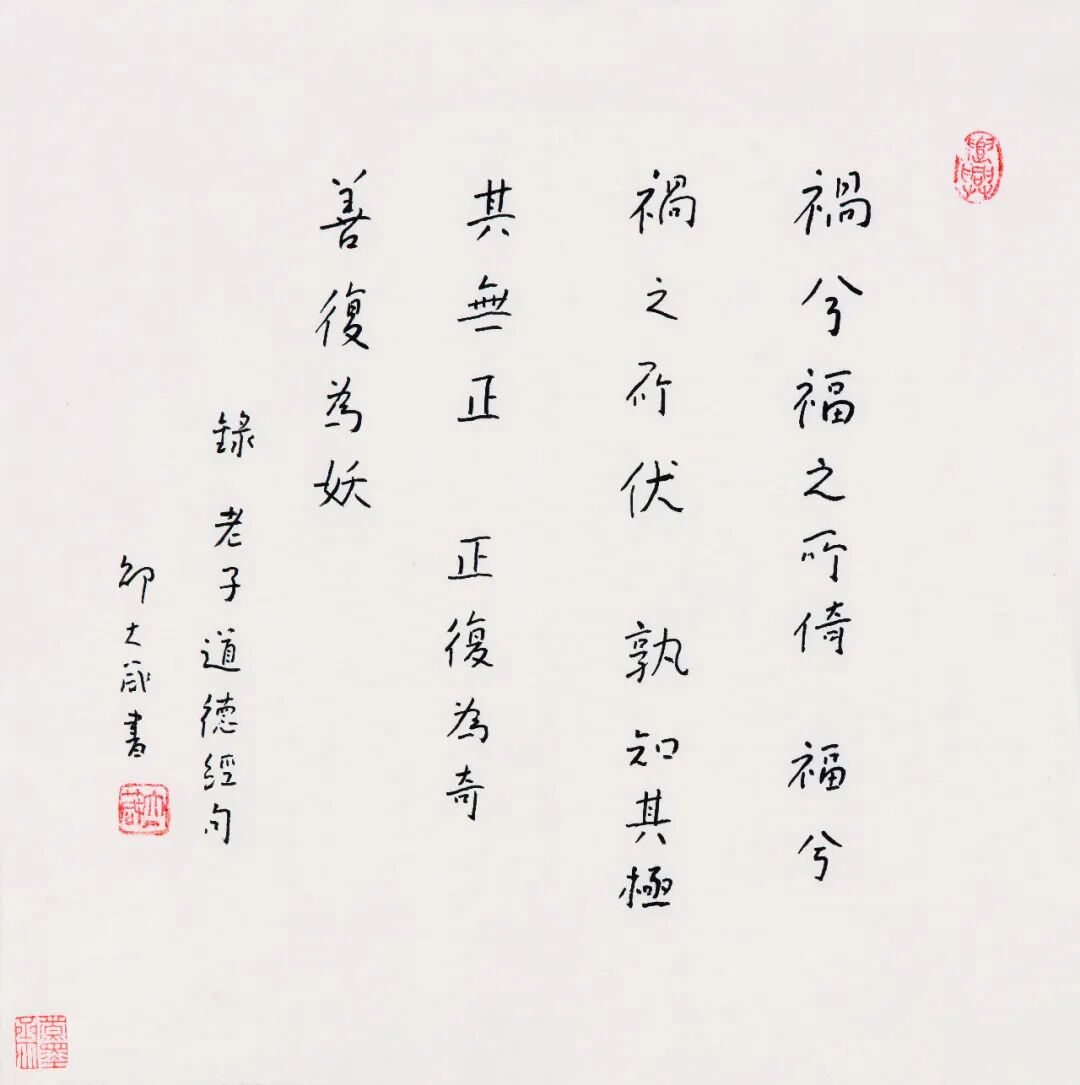 禍兮福之所倚 福兮
禍之所伏 孰知其極
其無正 正復為奇
善復為妖
錄 老子道德經句
邵大箴書
大箴